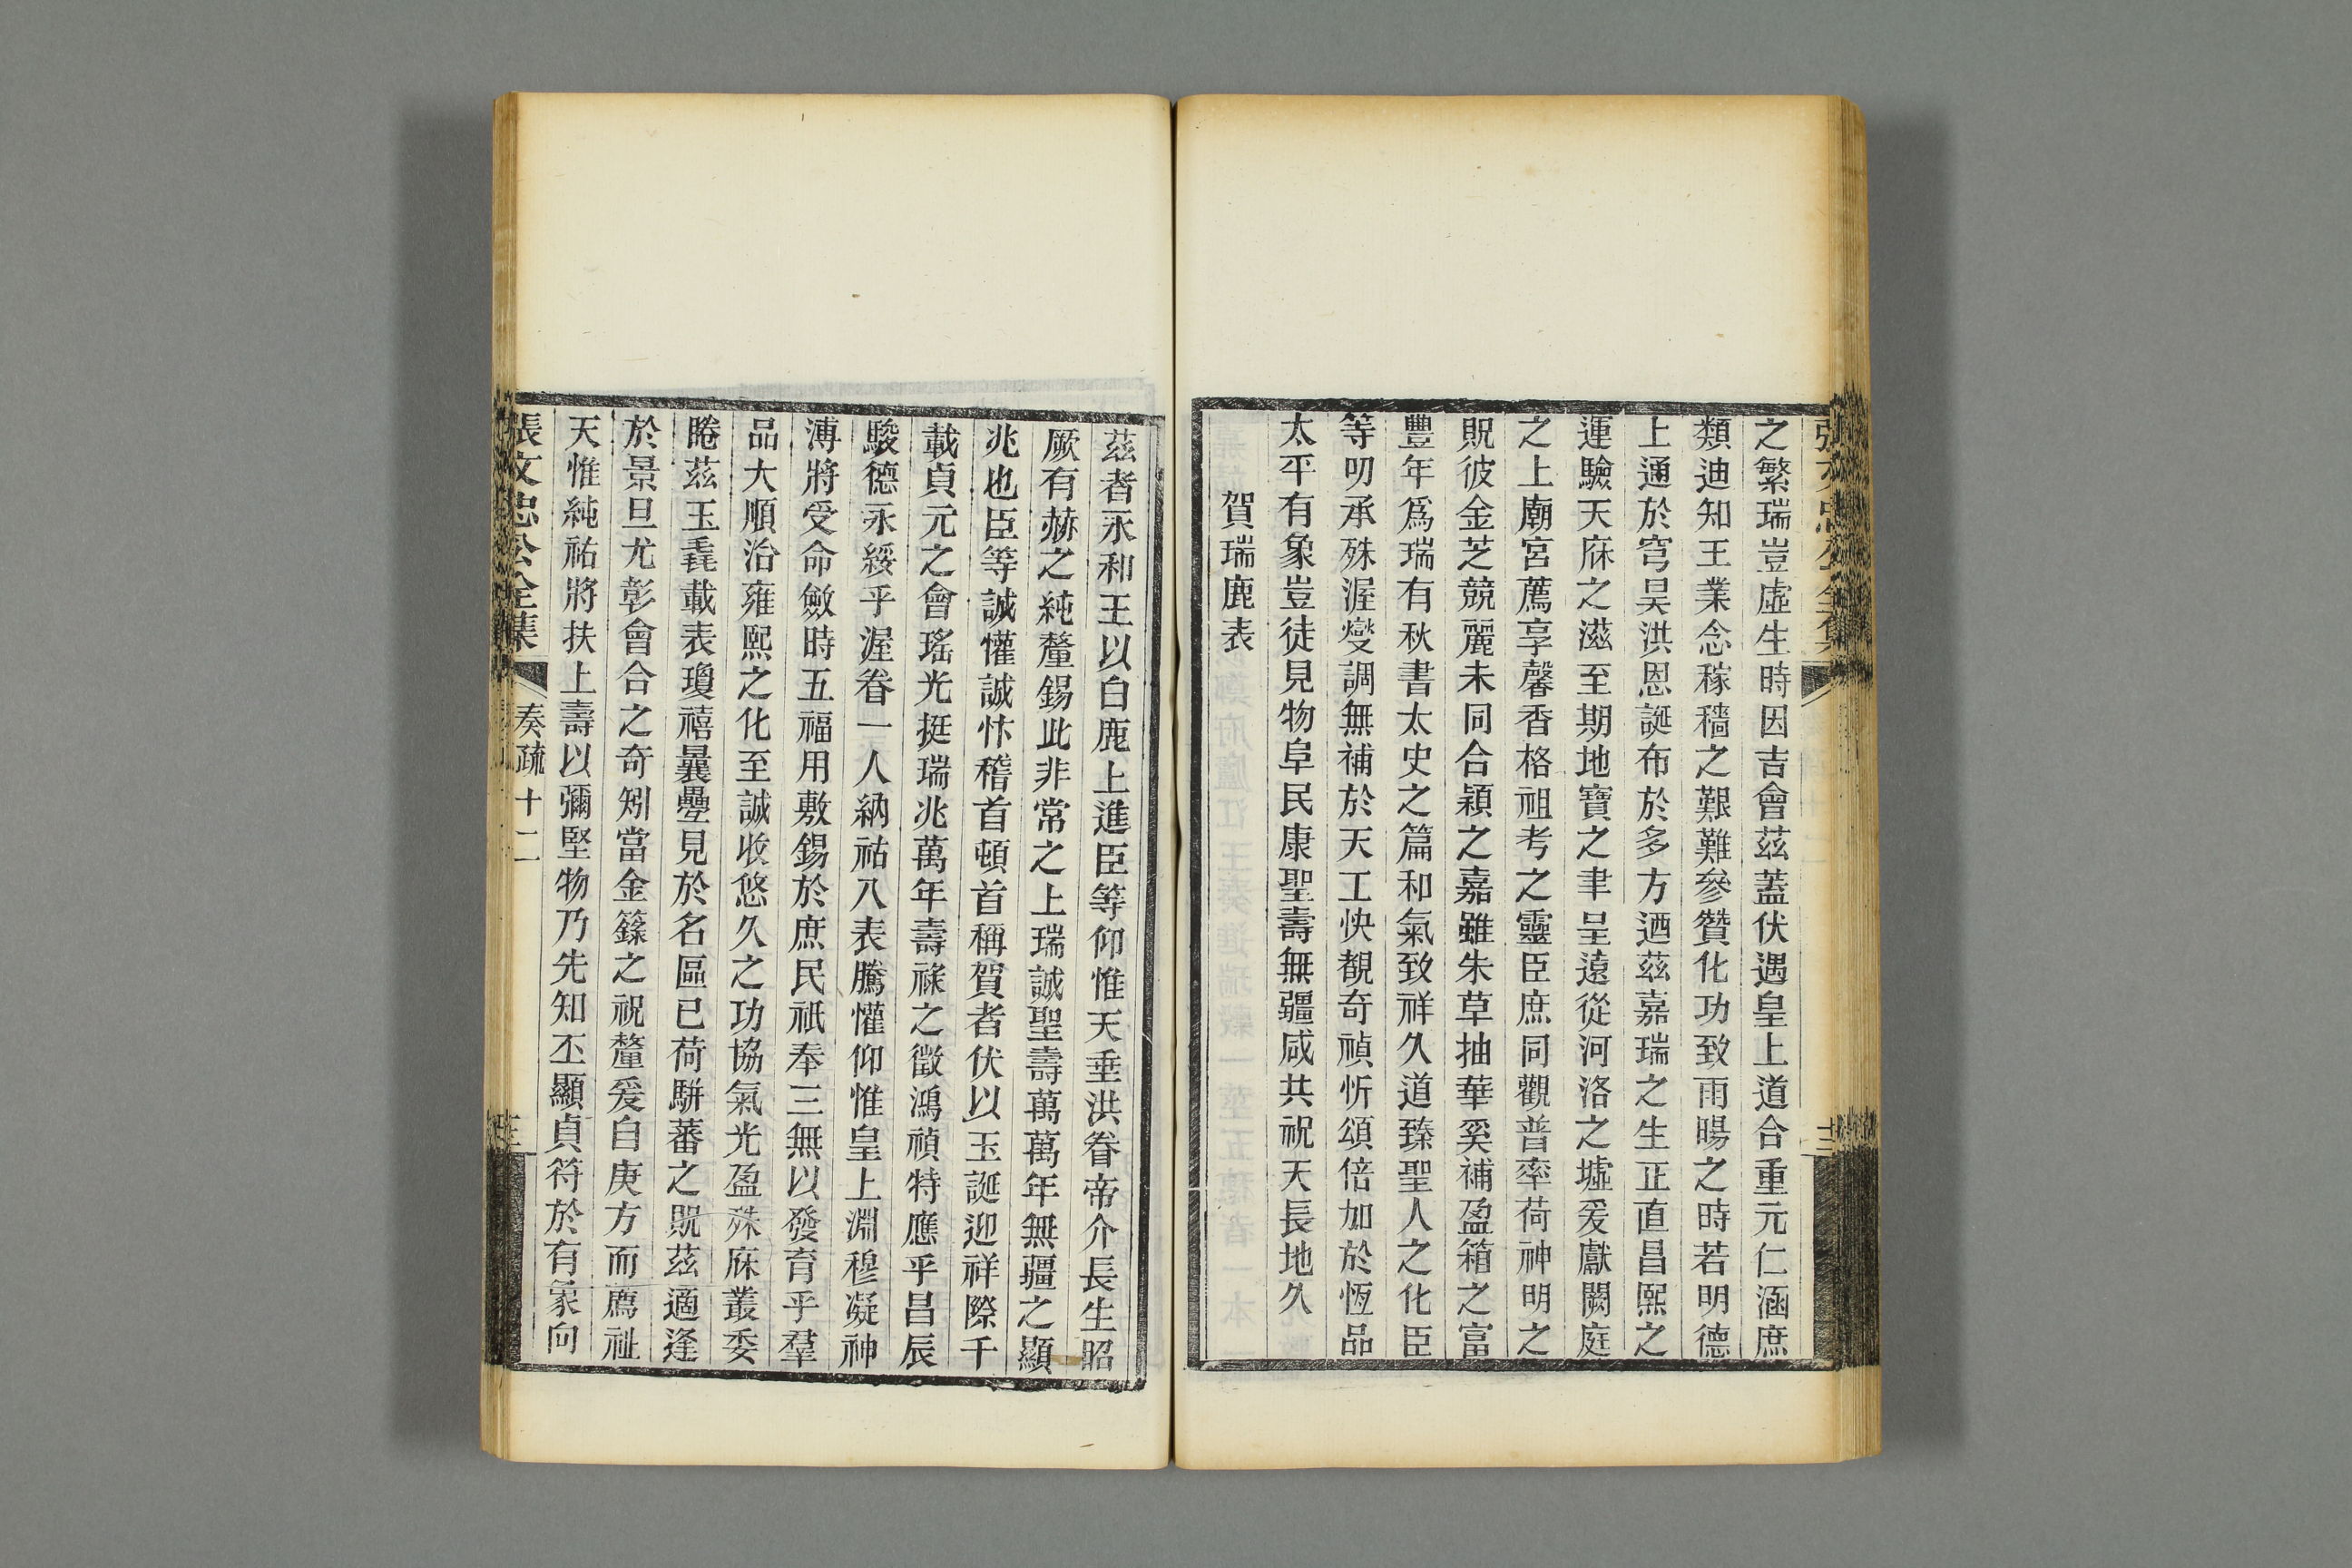 之繁瑞豈虛生時因吉會茲蓋伏遇皇上道合重元仁涵庶
類迪知王業念稼穡之艱難參贊化功致雨暘之時若明德
上通於穹昊洪恩誕布於多方迺茲嘉瑞之生正直昌熙之
運驗天庥之滋至期地寶之聿呈遠從河洛之墟爰獻闕庭
之上廟宮薦享馨香格祖考之靈臣庶同觀普率荷神明之
貺彼金芝競麗未同合穎之嘉雖朱草抽華奚補盈箱之富
豐年爲瑞有秋書太史之篇和氣致祥久道臻聖人之化臣
等叨承殊渥燮調無補於天工快覩奇禎忻頌倍加於恆品
太平有象豈徒見物阜民康聖壽無疆咸共祝天長地久
賀瑞鹿表
茲者永和王以白鹿上進臣等仰惟天垂洪眷帝介長生昭
厥有赫之純釐錫此非常之上瑞誠聖壽萬萬年無疆之顯
兆也臣等誠懽誠忭稽首頓首稱賀者伏以玉誕迎祥際千
載貞元之會瑤光挺瑞兆萬年壽祿之徵鴻禎特應乎昌辰
駿德永綏乎渥眷一人納祜八表騰懽仰惟皇上淵穆凝神
溥將受命斂時五福用敷錫於庶民祇奉三無以發育乎羣
品大順洽雍熙之化至誠收悠久之功協氣光盈殊庥叢委
睠茲玉毳載表瓊禧曩疊見於名區已荷駢蕃之貺茲適逢
於景旦尤彰會合之奇矧當金籙之祝釐爰自庚方而薦祉
天惟純祐將扶上壽以彌堅物乃先知丕顯貞符於有象向
張文忠公全集 奏疏十二